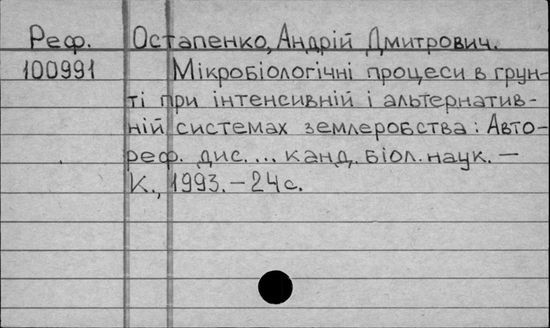 Реф. Остапенко, Андрій Дмитрович.
100991 Мікробіологічні процеси в грун-
ті при інтенсивній і альтернатив-
ній системах землеробства: Авто-
реф. дис. ... канд. біол. наук. –
К., 1993. – 24 с.